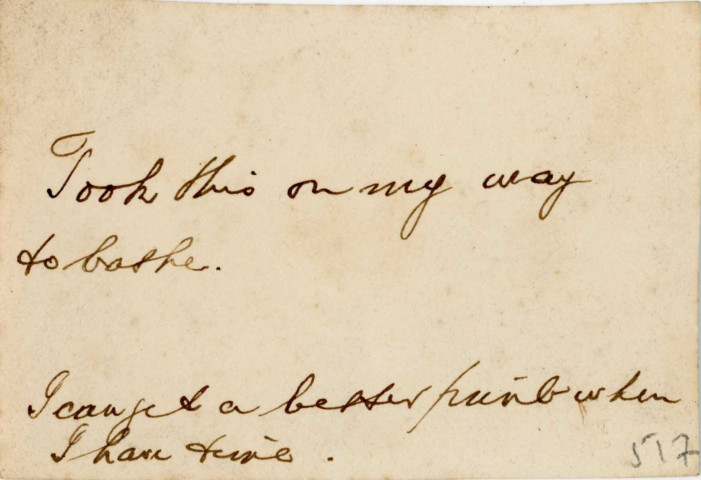 Took this on my way
to bathe.
I can get a better print when
I have time.
517